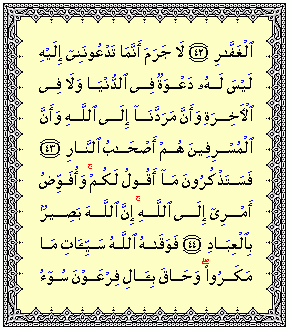 ٱلْغَفَّٰرِ ﴿٤٢﴾ لَا جَرَمَ أَنَّمَا تَدْعُونَنِىٓ إِلَيْهِ
لَيْسَ لَهُۥ دَعْوَةٌ فِى ٱلدُّنْيَا وَلَا فِى
ٱلْءَاخِرَةِ وَأَنَّ مَرَدَّنَآ إِلَى ٱللَّهِ وَأَنَّ
ٱلْمُسْرِفِينَ هُمْ أَصْحَٰبُ ٱلنَّارِ ﴿٤٣﴾
فَسَتَذْكُرُونَ مَآ أَقُولُ لَكُمْ ۚ وَأُفَوِّضُ
أَمْرِىٓ إِلَى ٱللَّهِ ۚ إِنَّ ٱللَّهَ بَصِيرٌۢ
بِٱلْعِبَادِ ﴿٤٤﴾ فَوَقَىٰهُ ٱللَّهُ سَيِّـَٔاتِ مَا
مَكَرُوا۟ ۖ وَحَاقَ بِـَٔالِ فِرْعَوْنَ سُوٓءُ